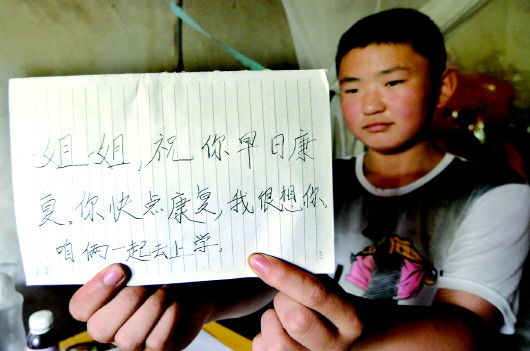 姐姐,祝你早日康
复。你快点康复,我很想你,
咱俩一起去上学,